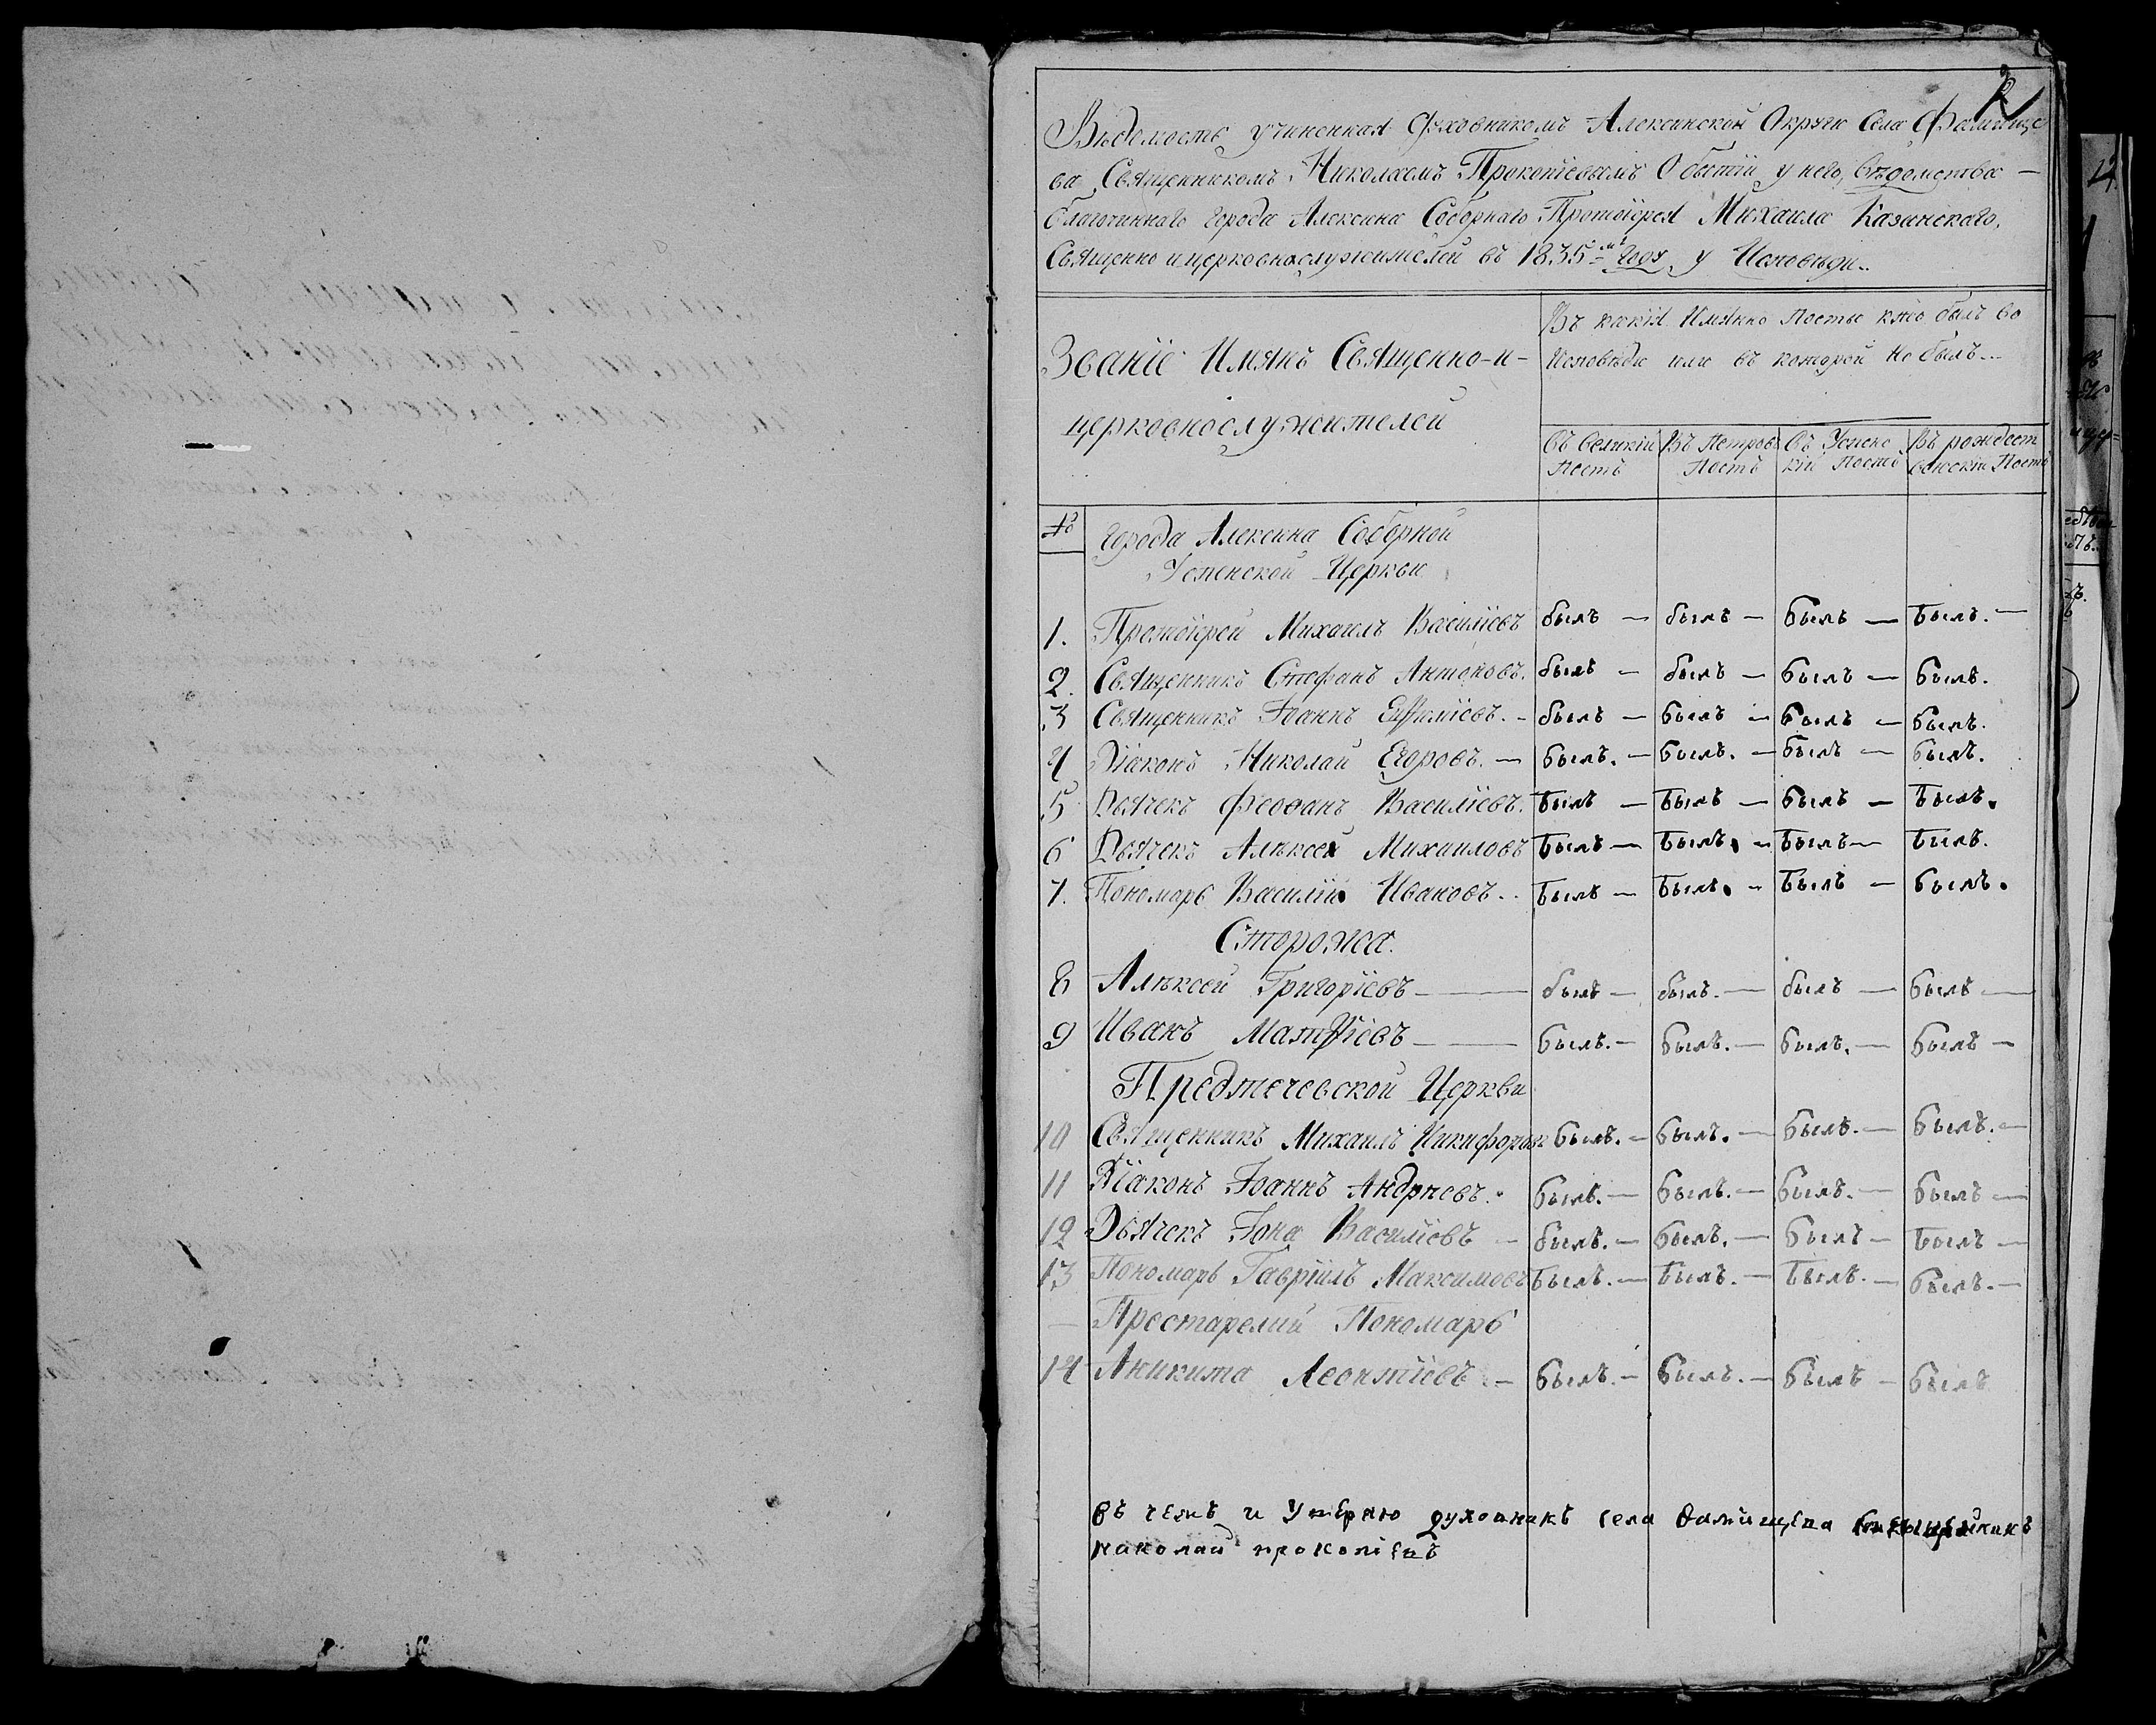 2
Вѣдомость учиненная Духовникомъ Алексинской Округи Села Фомище
ва Священникомъ Николаемъ Прокопіевымъ О бытіи у него, вѣдомства —
благочиннаго города Алексина Соборнаго Протоіерея Михаила Казанскаго,
Священно и церковнослужителей въ 1835-мъ Году, у Исповѣди..
Званіе Имянъ Священно-и-
церковнослужителей
Въ какія Имянно Посты кто былъ во
Исповѣди или въ которой не былъ...
Въ Великій Постъ
Въ Петровъ Постъ
Въ Успенс кій Постъ
Въ рождест венскій Постъ
№
Города Алексина Соборной
Успенской Церкви
1. Протоіерей Михаилъ Василіевъ былъ — былъ — былъ — былъ. —
2. Священникъ Стефанъ Антоновъ. былъ — былъ — былъ — былъ.
3 Священникъ Іоаннъ Евѳиміевъ. - былъ — былъ — былъ — былъ.
4 Діаконъ Николай Егоровъ. — былъ. — былъ. — былъ — былъ.
5 Дьячекъ Феофанъ Василіевъ. былъ — былъ — былъ — былъ.
6 Дьячекъ Алѣксей Михаиловъ былъ — былъ. — былъ — былъ.
7. Пономарь Василій Ивановъ.. былъ — былъ. — былъ — былъ.
Сторожа.
8 Алѣксей Григоріевъ — былъ — былъ. — былъ — былъ —
9 Иванъ Матѳіевъ — былъ. — былъ. — былъ. — былъ —
Предтечевской Церкви
10 Священникъ Михаилъ Никифоровъ былъ. — былъ. — былъ. — былъ. —
11 Діаконъ Іоаннъ Андреевъ. былъ. — былъ. — былъ. — былъ —
12 Дьячекъ Іона Василіевъ — былъ. — былъ. — былъ — былъ —
13 Пономарь Гавріилъ Максимовъ былъ. — былъ. — былъ. — былъ. —
— Престарелий Пономарь
14 Аникита Леонтіевъ — былъ. — былъ. — былъ — былъ
въ чемъ и Утверяю духовникъ села Фомищева священникъ
николай прокопіевъ